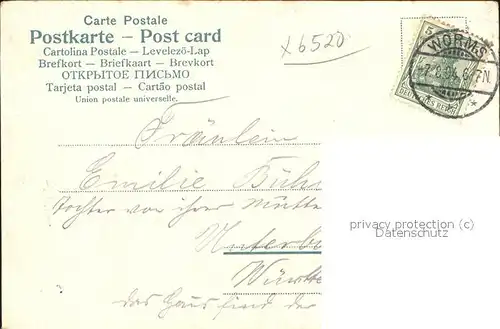 Carte Postale
Postkarte – Post card
Cartolina Postale – Levelező-Lap
Brefkort – Briefkaart – Brevkort
ОТКРЫТОЕ ПИСЬМО
Tarjeta postal – Cartão postal
Union postale universelle.
x6520
WORMS
DEUTSCHES REICH
Fräulein
Emilie Büh
Tochter von ihrer Mutter
privacy protection (c)
Datenschutz
Unterb
Württe
das Haus sind der